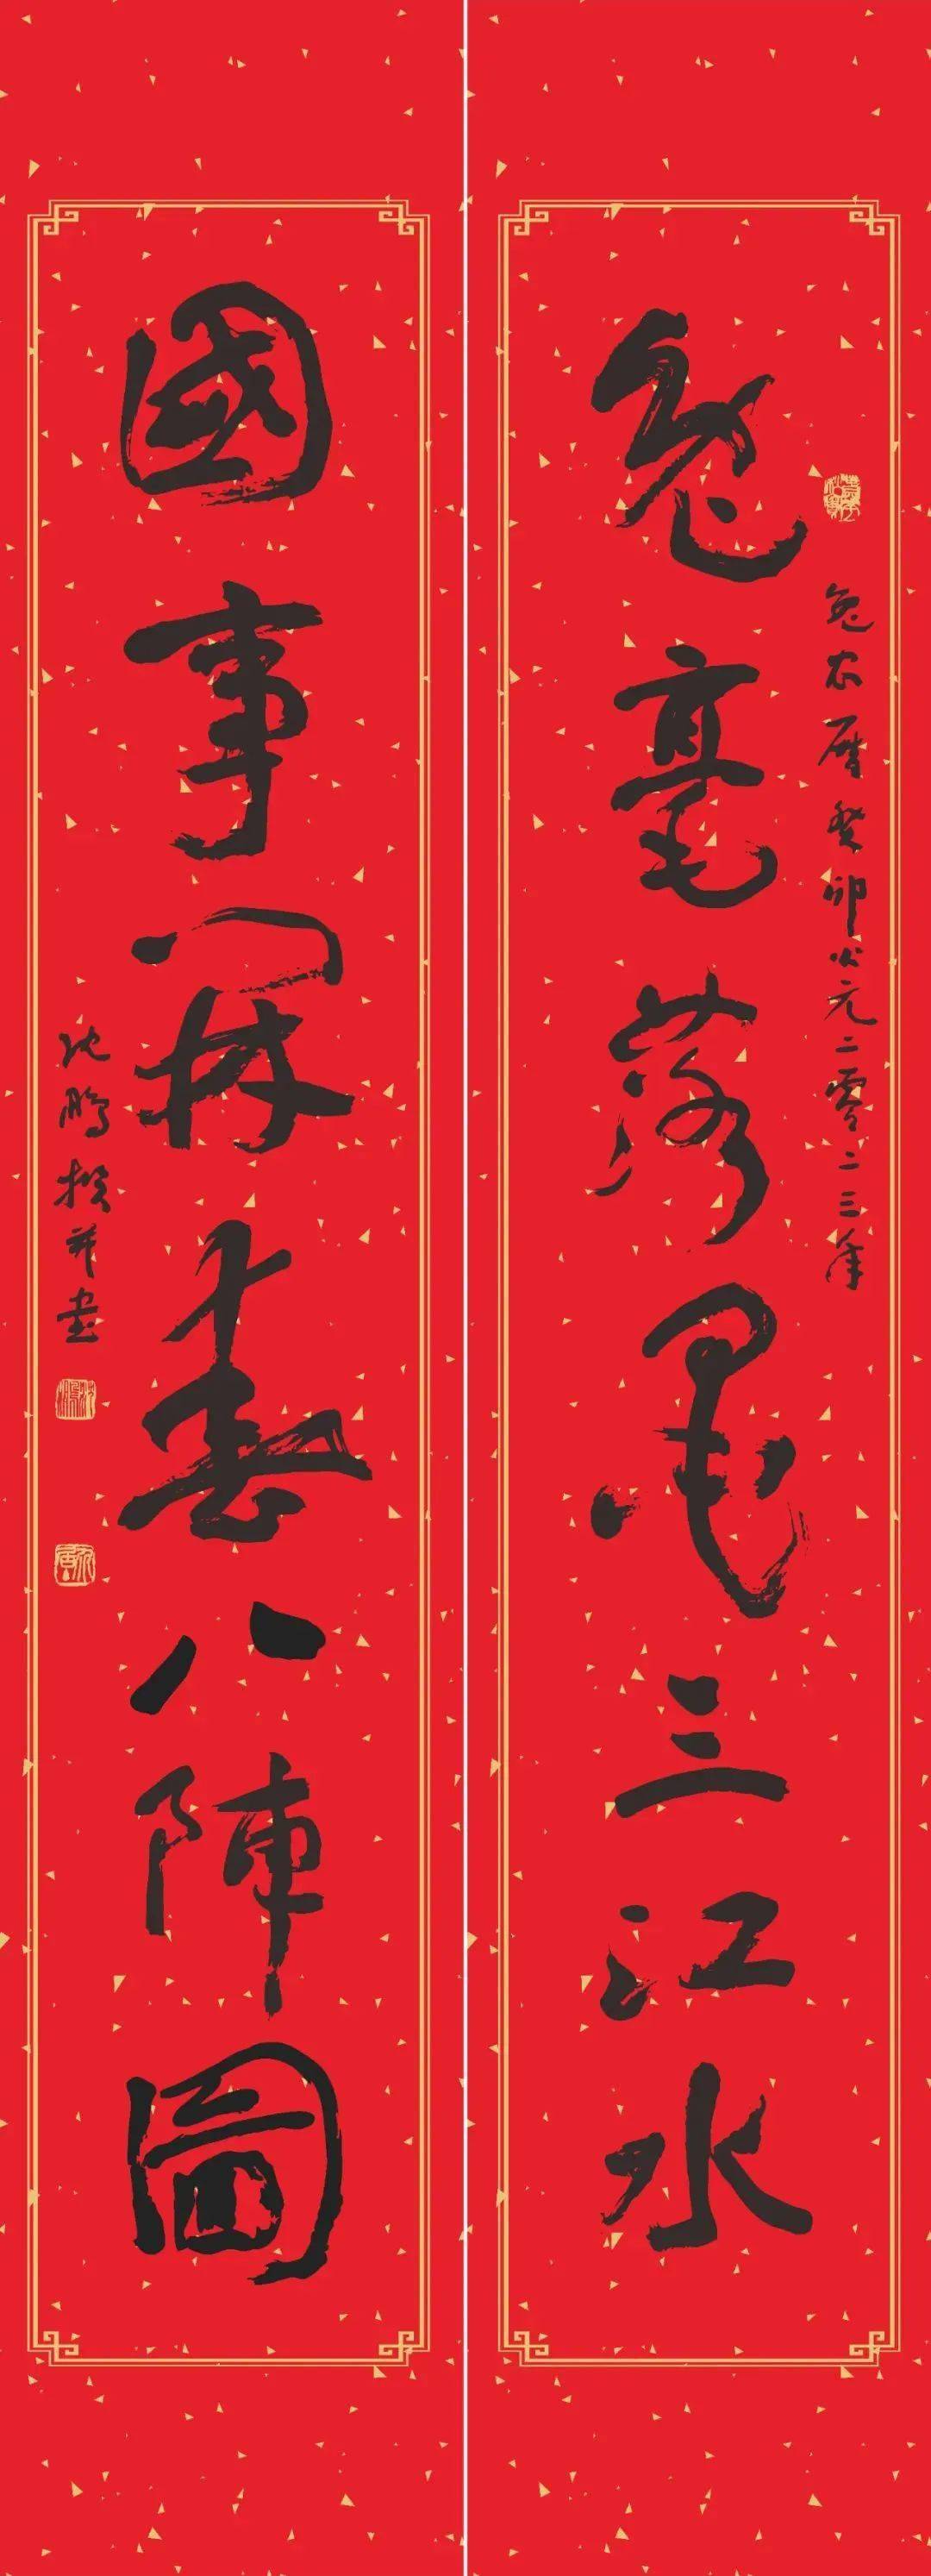 兔毫落墨三江水
兔农历癸卯公元二零二三年
國事開春八陣圖
沈鹏撰并書